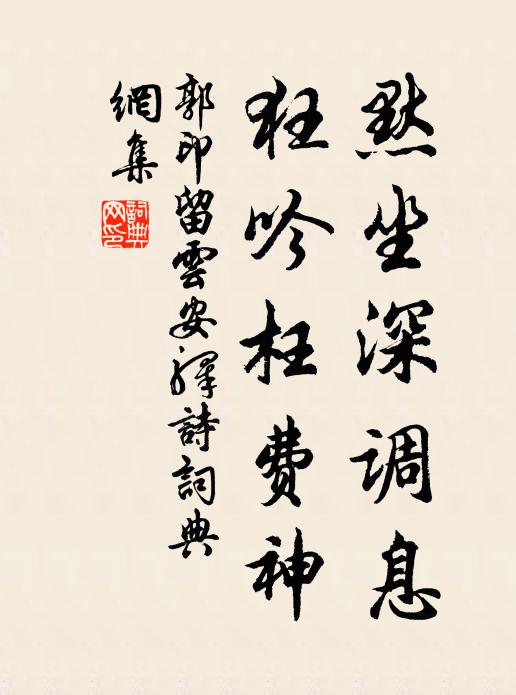 默坐深调息
狂吟枉费神
郭印留雲安驛詩詞典
網集
詞典網印